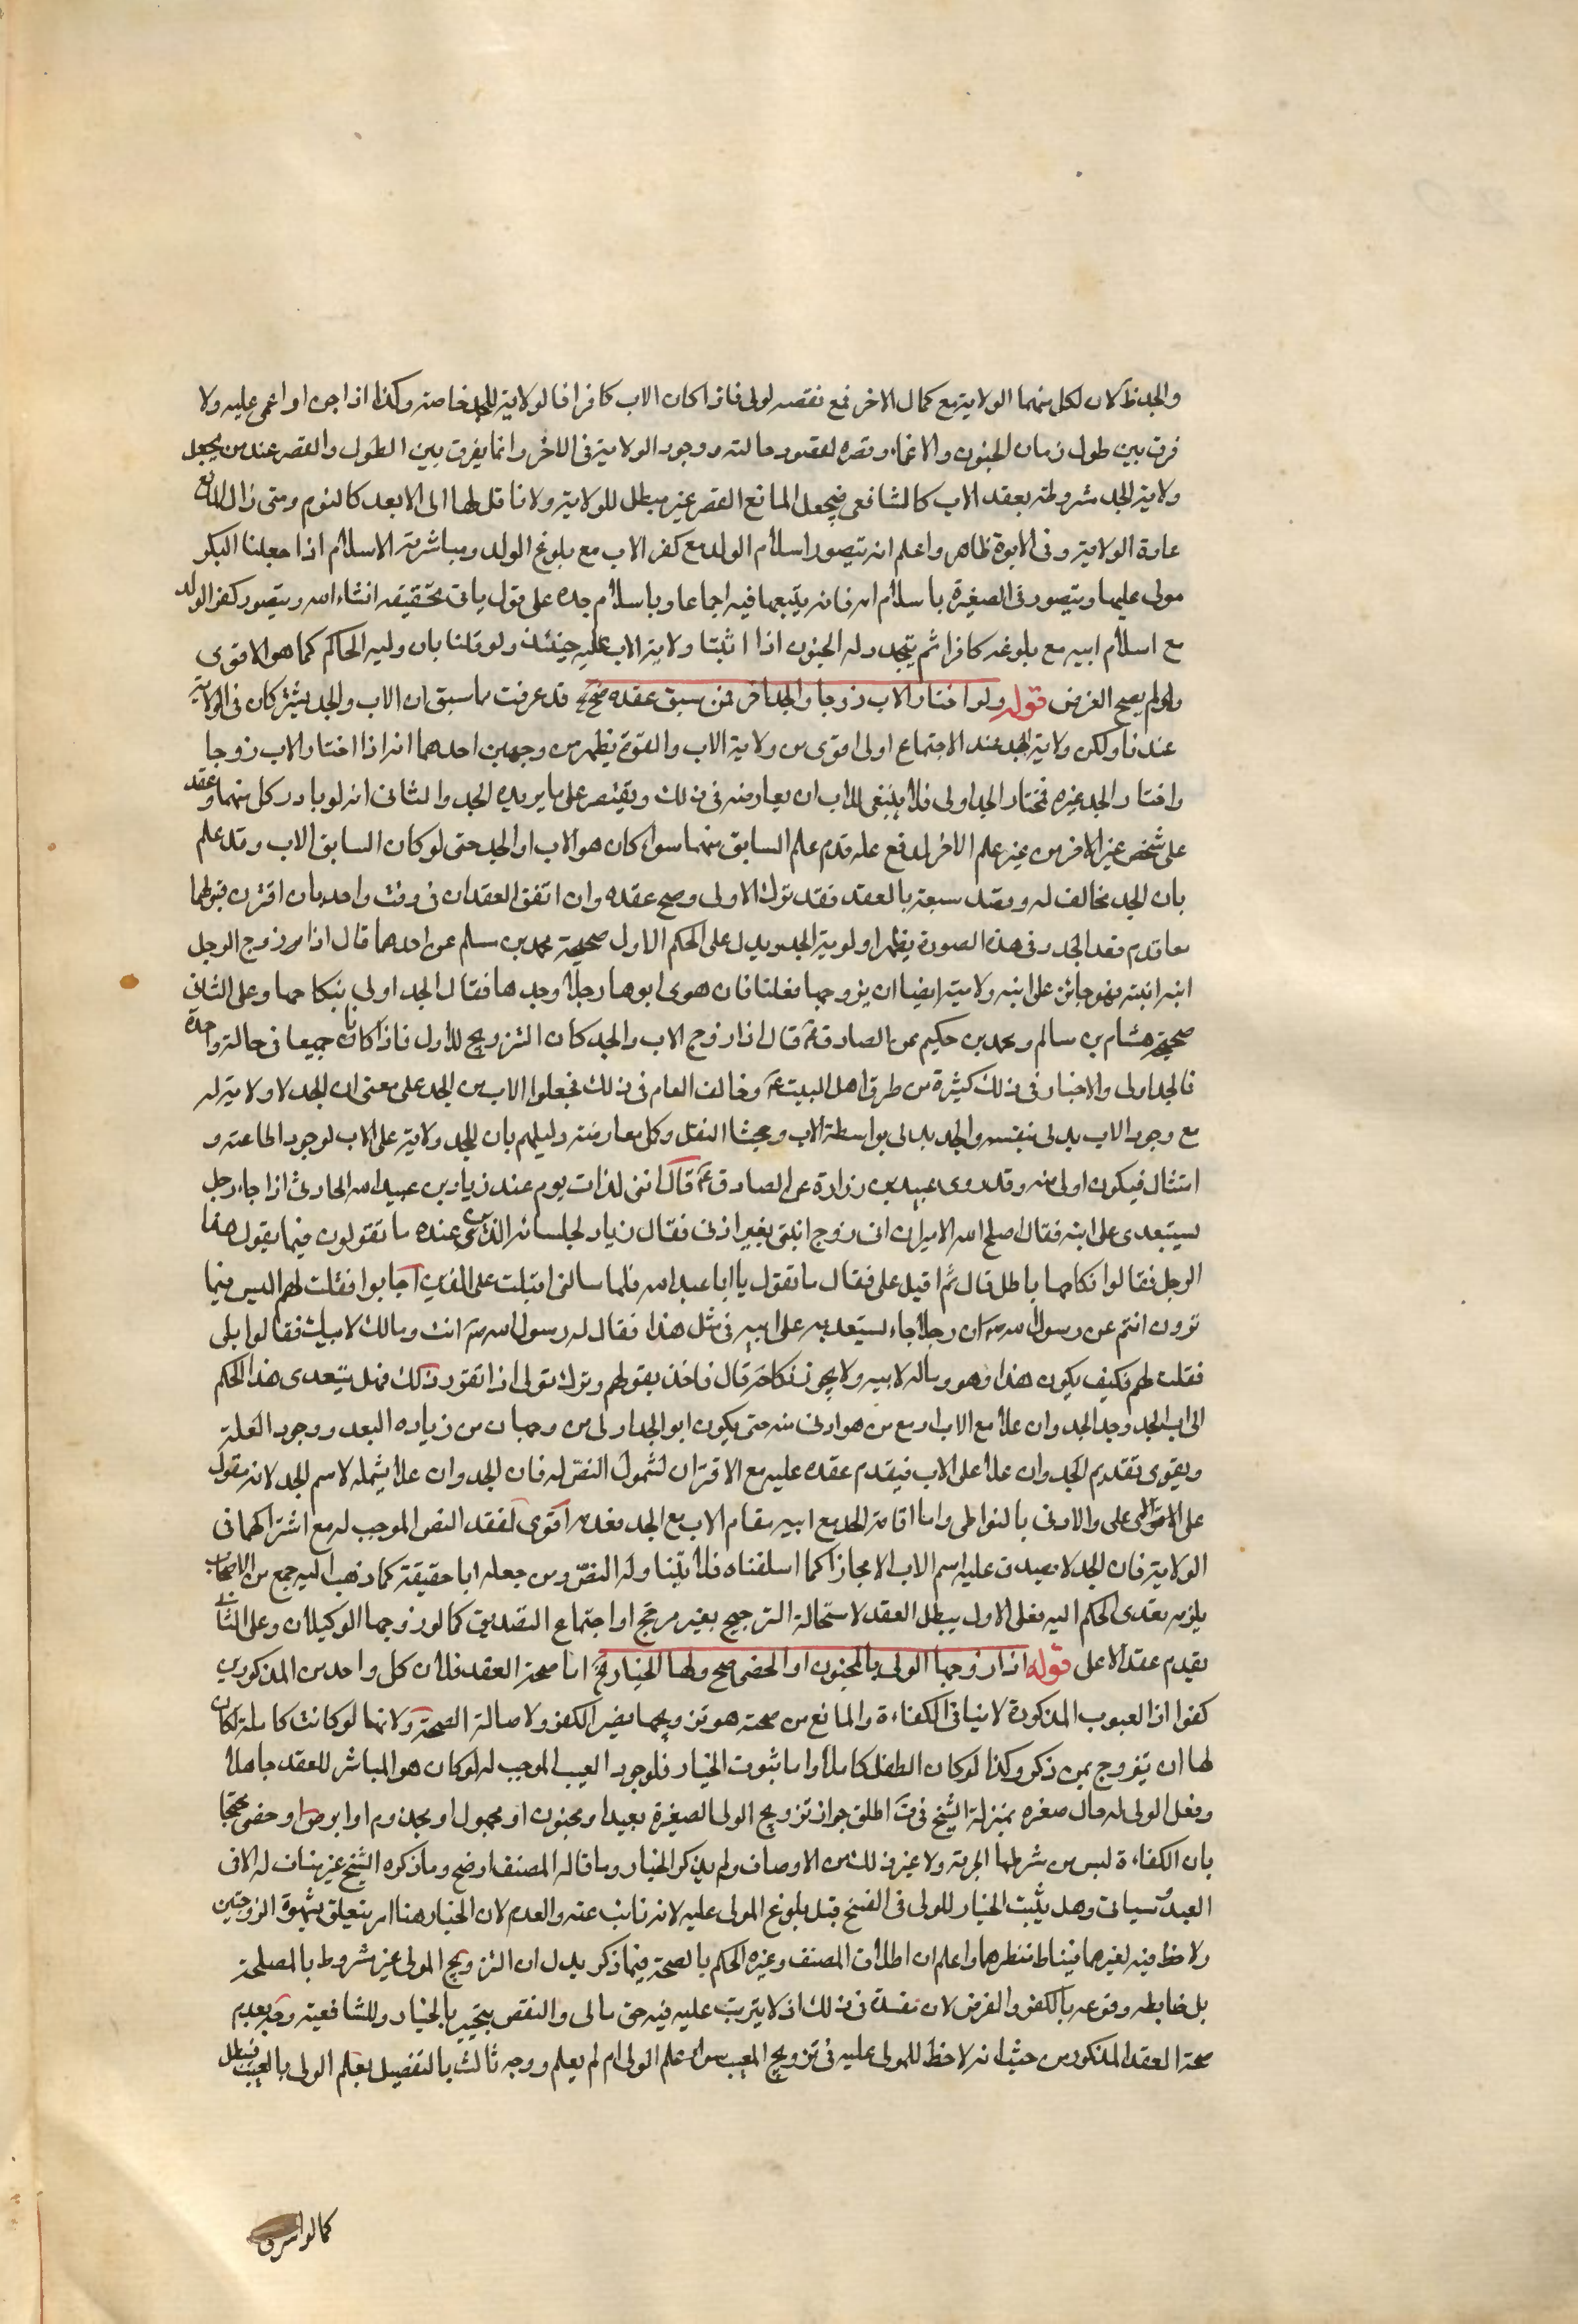 والجد ظ لان لكل منهما الولاية مع كمال الاخر فمع نقصه اولى فاذا كان الاب كافرا فالولاية للجد خاصة وكذا اذا جن او اغمى عليه ولا
فرق بين طول زمان الجنون والاغماء وقصره لقصور حالته ووجود الولاية في الاخر وانما يفرق بين الطول والقصر عند من يجعل
ولاية الجد مشروطة بفقد الاب كالشافعي فيجعل المانع القصير غير مبطل للولاية ولا ناقل لها الى الابعد كالنوم ومتى زال المانع
عادة الولاية وفي الابوة ظاهر واعلم انه يتصور اسلام الولد مع كفر الاب مع بلوغ الولد ومباشرته الاسلام اذا جعلنا البكر
مولى عليها ويتصور في الصغيرة باسلام امه فانه يتبعها فيه اجماعا وباسلام جده على قول ياتي تحقيقه انشاء الله ويتصور كفر الولد
مع اسلام ابيه مع بلوغه كافرا ثم يتجدد له الجنون اذا اثبتنا ولاية الاب عليه حينئذ ولو قلنا بان وليه الحاكم كما هو الاقوى
او لم يصح الفرض قوله ولو اختار الاب زوجا والجد اخر فمن سبق عقده صح قد عرفت مما سبق ان الاب والجد يشتركان في الولاية
عندنا ولكن ولاية الجد عند الاجتماع اولى اقوى من ولاية الاب والقوة يظهر من وجهين احدهما انه اذا اختار الاب زوجا
واختار الجد غيره فمختار الجد اولى فلا ينبغي للاب ان يعارضه في ذلك ويقتصر على ما يريده الجد والثاني انه لو بادر كل منهما وعقد
على شخص غير الاخر من غير علم الاخر او مع علمه قدم عقد السابق منهما سواء كان هو الاب او الجد حتى لو كان السابق الاب وقد علم
بان الجد مخالف له وقصد سبقه بالعقد فقد ترك الاولى وصح عقده وان اتفق العقدان في وقت واحد بان اقترن قبولهما
معا قدم عقد الجد وفي هذه الصورة يظهر اولوية الجد ويدل على الحكم الاول صحيحة محمد بن مسلم عن احدهما قال اذا زوج الرجل
ابنه ابنته فهو جائز على ابنه ولابنه ايضا ان يزوجها فقلنا فان هوى ابوها رجلا وجدها فقال الجد اولى بنكاحها وعلى الثاني
صحيحة هشام بن سالم ومحمد بن حكيم عن الصادق ع قال اذا زوج الاب والجد كان التزويج للاول فاذا كانا جميعا في حالة واحدة
فالجد اولى والاخبار في ذلك كثيرة من طرق اهل البيت ع وخالف العام في ذلك فجعلوا الاب من الجد على معنى ان الجد لا ولاية له
مع وجود الاب يدلى بنفسه والجد يدلى بواسطة الاب وبحثنا النقل وكل معارضة دليلهم بان للجد ولاية على الاب لوجود اطاعته و
امتثاله فيكون اولى منه وقد روى عبيد بن زرارة عن الصادق ع قال انني لذات يوم عند زياد بن عبيد الله الحارثي اذا جاء رجل
يستعدي على ابنه فقال اصلح الله الامير ان ابي زوج ابنتي بغير اذني فقال زياد لجلسائه الذين عنده ما تقولون فيما يقول هذا
الرجل فقالوا نكاحها باطل قال ثم اقبل علي فقال ما تقول يا ابا عبد الله فلما سالني اقبلت على الذين اجابوا فقلت لهم اليس فيما
تروون انتم عن رسول الله ص ان رجلا جاء يستعديه على ابيه في مثل هذا فقال له رسول الله ص انت ومالك لابيك فقالوا بلى
فقلت لهم فكيف يكون هذا وهو وماله لابيه ولا يجوز نكاحه قال فاخذ بقولهم وترك قولى اذا تقرر ذلك فهل يتعدى هذا الحكم
الى اب الجد وجد الجد وان علا مع الاب او مع من هو ادنى منه حتى يكون ابو الجد اولى من وجهان من زياده البعد ووجود العلة
ويقوى تقديم الجد وان علا على الاب فيقدم عقده عليه مع الاقتران لشمول النص له فان الجد وان علا يشمله لاسم الجد لانه مقول
على الاعلى والادنى بالتواطي واما اقامة الجد مع ابيه مقام الاب مع الجد فعدمه اقوى لفقد النص الموجب له مع اشتراكهما في
الولاية فان الجد لا يصدق عليه اسم الاب الا مجازا كما اسلفناه فلا يتناوله النص ومن جعله ابا حقيقة كما ذهب اليه جمع من الاصحاب
يلزمه تعدي الحكم اليه فعلى الاول يبطل العقد لاستحالة الترجيح بغير مرجح او اجتماع التصديق كما لو زوجها الوكيلان وعلى الثاني
يقدم عقد الاعلى قوله اذا زوجها الولى بالمجنون او الخصى صح ولها الخيار اما صحة العقد فلان كل واحد من المذكورين
كفوا اذ العيوب المذكورة لا ينافي الكفاءة والمانع من صحته هو تزويجها بغير الكفو ولاصالة الصحة ولانها لو كانت كاملة لكان
لها ان يتزوج بمن ذكر وكذا لو كان الطفل كاملا واما ثبوت الخيار فلوجود العيب الموجب له لو كان هو المباشر للعقد جاهلا
وفعل الولى له حال صغره بمنزلة الشيخ في ف اطلق جواز تزويج الولى الصغيرة بعبد او مجنون او مجهول او مجذوم او ابرص او خصى محتجا
بان الكفاءة ليس من شرطها الحرية ولا غير ذلك من الاوصاف ولم يذكر الخيار وما قاله المصنف اوضح وما ذكره الشيخ غير مناف له الا في
العبد وسياتي وهل يثبت الخيار للولى في الفسخ قبل بلوغ المولى عليه لانه نائب عنه والعدم لان الخيار هنا امر يتعلق بشهوة الزوجين
ولا حظ فيه لغيرهما فيناط بنظرهما واعلم ان اطلاق المصنف وغيره الحكم بالصحة فيما ذكر يدل ان التزويج المولى غير مشروط بالمصلحة
بل ضابطه وقوعه بالكفو والفرض لان مفسدة في ذلك اذ لا يترتب عليه فيه حق مالى والنقص يتجبر بالخيار وللشافعية وجه بعدم
صحة العقد المذكور من حيث انه لا حظ للمولى عليه في تزويج المعيب سواء علم الولى ام لم يعلم ووجه ثالث بالتفصيل بعلم الولى بالعيب فيبطل
كما لو اشرى